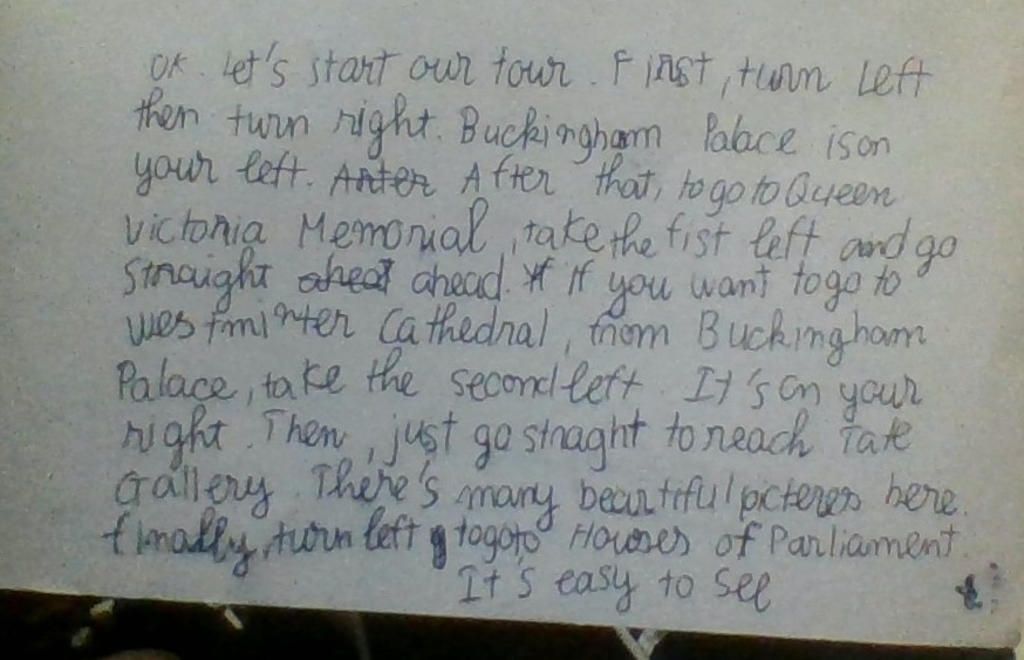 OK. Let's start our tour. First, turn left
then turn right. Buckingham Palace is on
your left. After that, to go to Queen
Victoria Memorial, take the fist left and go
straight ahead. If you want to go to
Westminter Cathedral, from Buckingham
Palace, take the second left. It's on your
right. Then, just go straght to reach Tate
Gallery. There's many beautiful picteres here.
finally, turn left to go to Houses of Parliament.
It's easy to see